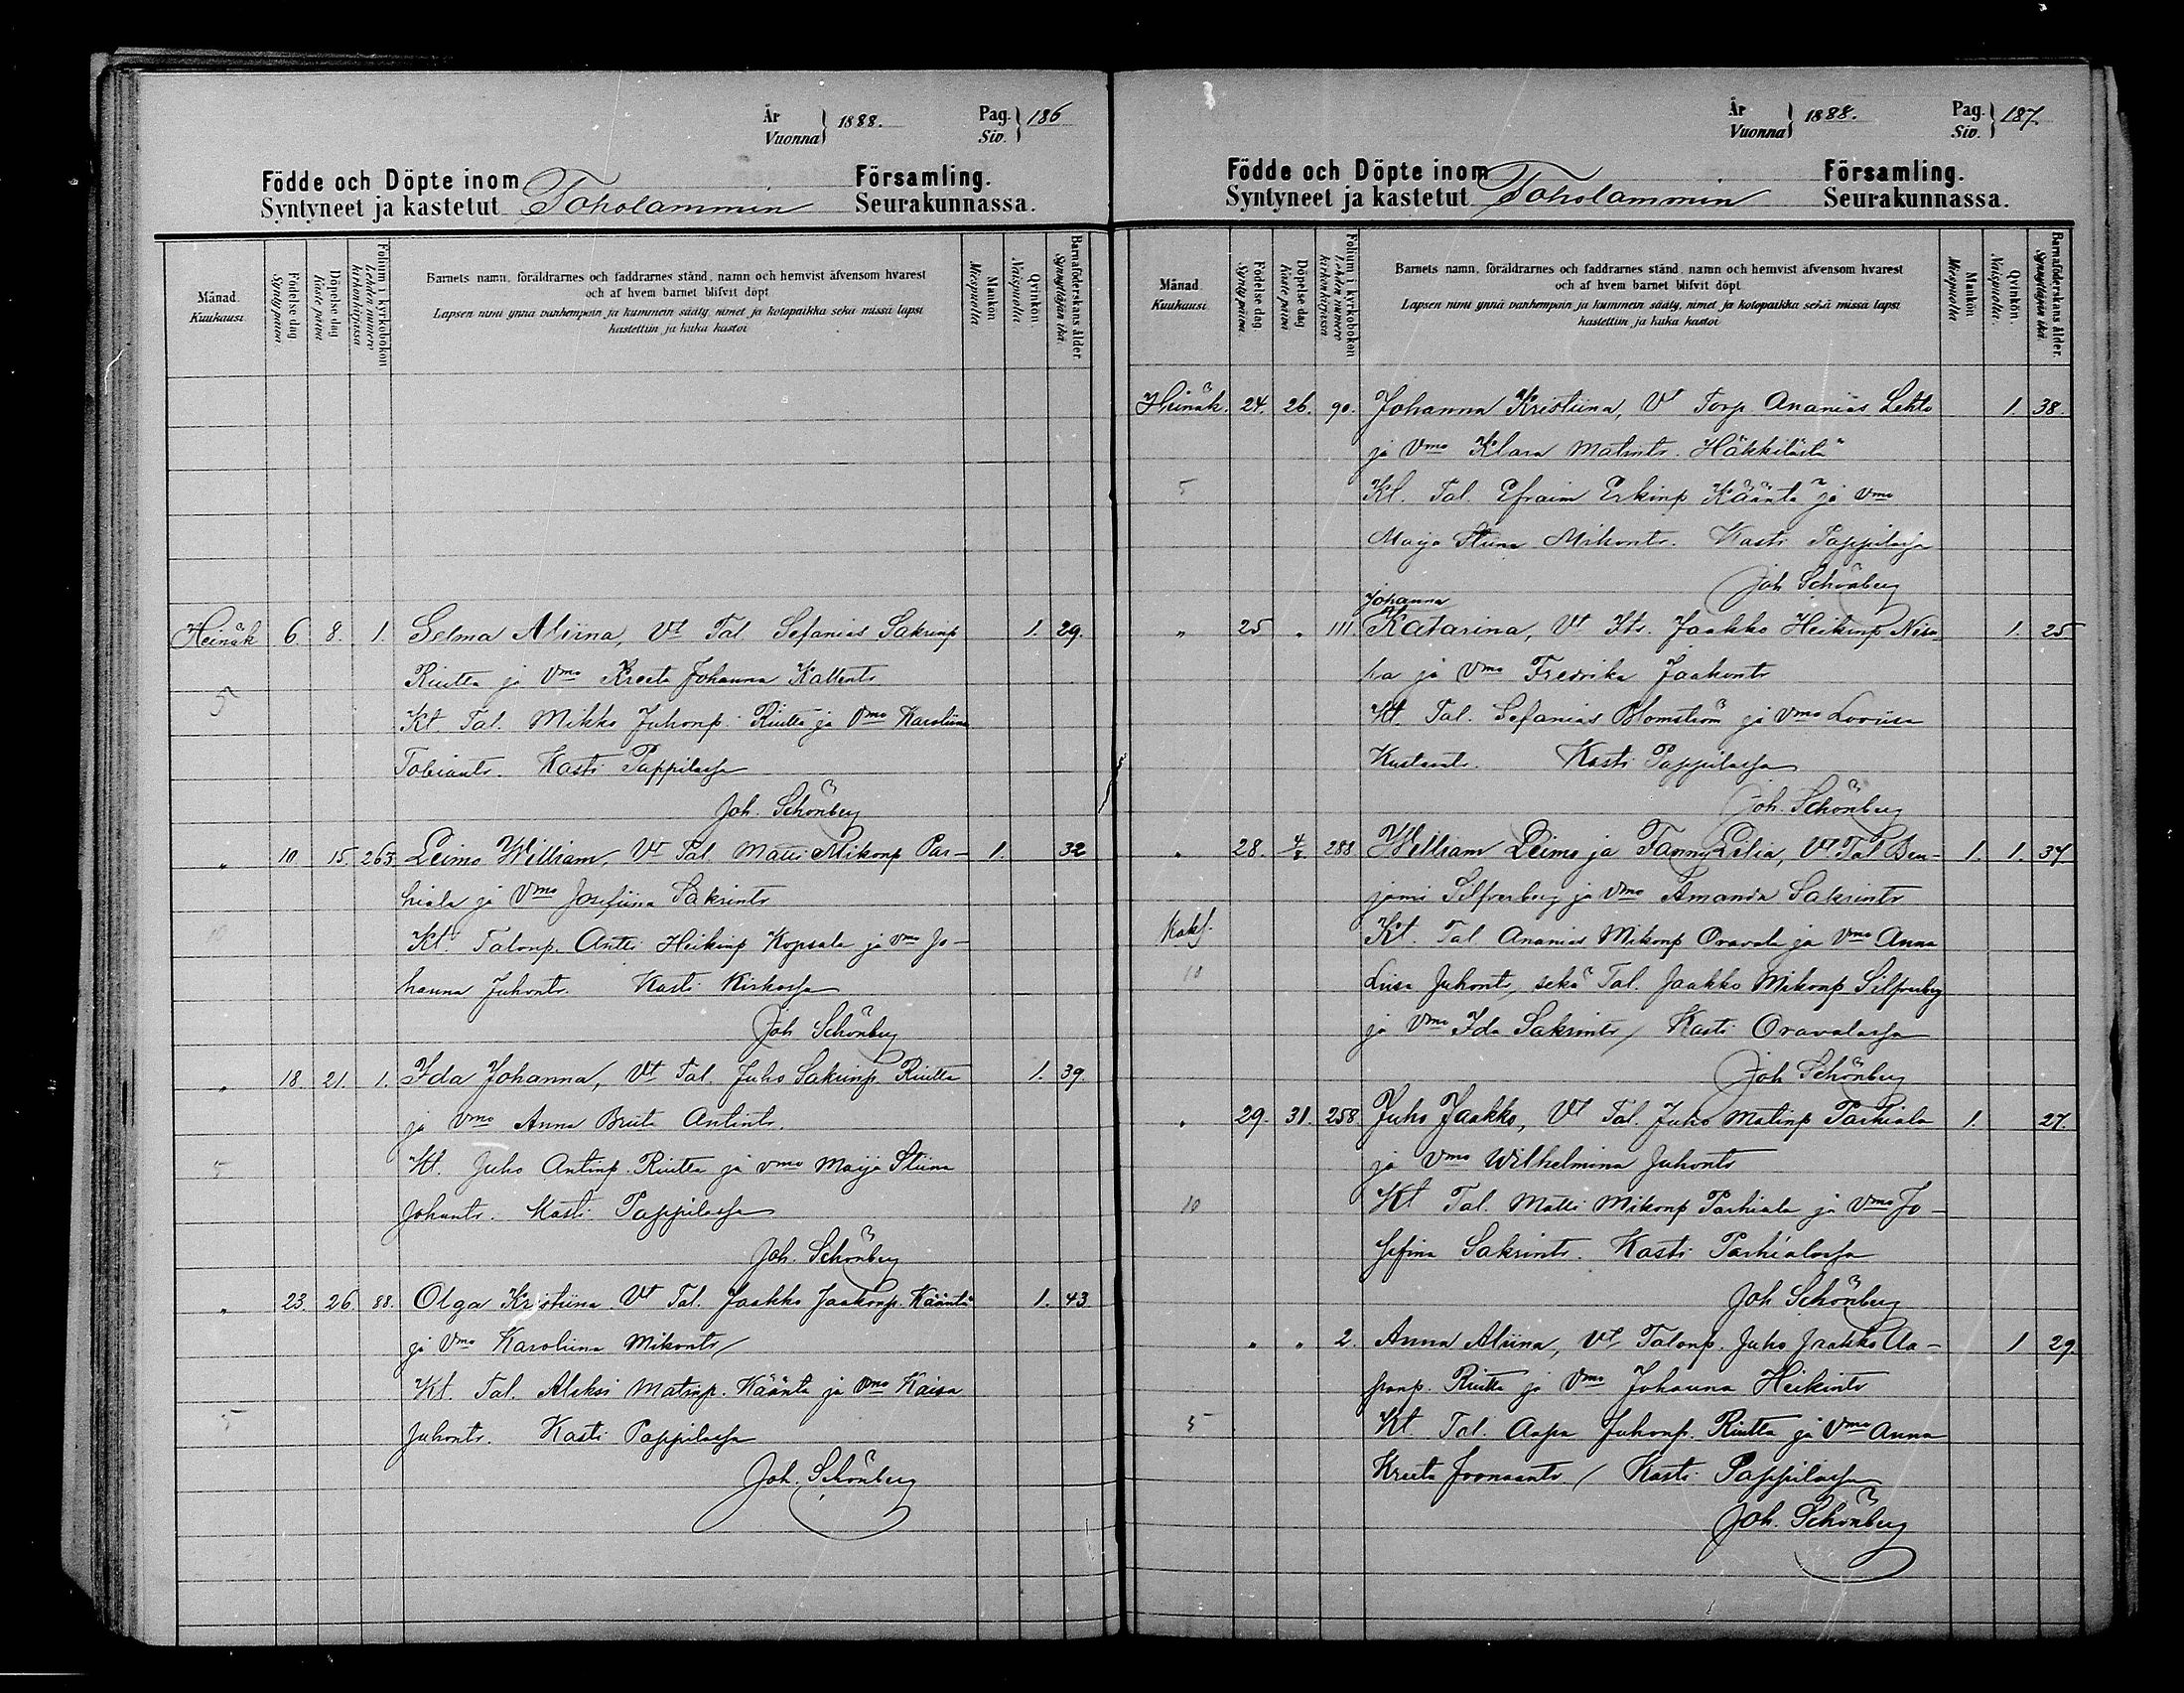 År
Vuonna } 1888.
Pag.
Siv. } 186
Födde och Döpte inom
Syntyneet ja kastetut Toholammin
Församling.
Seurakunnassa.
Månad.
Kuukausi.
Födelse dag
Syntypäivä
Döpelse dag
Kaste päivä
Folium i kyrkoboken
Lehden numero kirkonkirjassa
Barnets namn, föräldrarnes och faddrarnes stånd, namn och hemvist äfvensom hvarest
och af hvem barnet blifvit döpt
Lapsen nimi ynnä vanhempain ja kummein sääty, nimet ja kotopaikka sekä missä lapsi
kastettiin ja kuka kastoi
Mankön
Miespuolia
Qvinkön.
Naispuolia
Barnaföderskans ålder.
Synnyttäjän ikä.
Heinäk 6. 8. 1. Selma Aliina, Vt Tal Sefanias Sakrinp 1. 29.
Riutta ja Vmo Kreeta Johanna Kallents
5
Kt. Tal. Mikko Juhonp. Riutta ja Vmo Karoliina
Tobiants. Kasti Pappilassa
Joh. Schönberg
" 10. 15. 263 Leimo William, Vt Tal Matti Mikonp Par- 1. 32
hiala ja Vmo Josefiina Sakrints
10 Kt. Talonp. Antti Heikinp Kopsala ja Vmo Jo-
hanna Juhonts. Kasti Kirkossa
Joh Schönberg
" 18. 21. 1. Ida Johanna, Vt Tal. Juho Sakrinp. Riutta 1. 39.
ja Vmo Anna Briita Antints.
5 Kt. Juho Antinp. Riutta ja Vmo Maija Stiina
Johants. Kasti Pappilassa
Joh. Schönberg
" 23. 26. 88. Olga Kristiina Vt Tal. Jaakko Jaakonp. Kääntä 1. 43
ja Vmo Karoliina Mikonts
Kt. Tal. Aleksi Matinp. Kääntä ja Vmo Kaisa
5 Juhonts. Kasti Pappilassa
Joh. Schönberg
År
Vuonna } 1888.
Pag.
Siv. } 187.
Födde och Döpte inom
Syntyneet ja kastetut Toholammin
Församling.
Seurakunnassa.
Månad
Kuukausi
Födelse dag.
Synty päivä.
Döpelse dag
Kaste päivä
Folium i kyrkoboken
Lehden numero kirkonkirjassa
Barnets namn, föräldrarnes och faddrarnes stånd, namn och hemvist äfvensom hvarest
och af hvem barnet blifvit döpt
Lapsen nimi ynnä vanhempain ja kummein sääty, nimet ja kotopaikka sekä missä lapsi
kastettiin ja kuka kastoi
Mankön
Miespuolia
Qvinkön.
Naispuolia.
Barnaföderskans ålder.
Synnyttäjän ikä.
Heinäk. 24. 26. 90. Johanna Kristiina, Vt Torp. Ananias Lehto 1. 38.
ja Vmo Klara Matints. Häkkilästä
5 Kt. Tal. Efraim Erkinp Kääntä ja Vmo
Maija Stiina Mikonts. Kasti Pappilassa
Joh Schönberg
Johanna
" 25 " 111. Katarina, Vt Its. Jaakko Heikinp Niva 1. 25
la ja Vmo Fredrika Jaakonts
Kt. Tal. Sefanias Blomström ja Vmo Loviisa
Kustants. Kasti Pappilassa
Joh. Schönberg
" 28. 4/8 288 William Leimo ja Fanny Lilia, Vt Tal Ben- 1. 1. 37
jami Silfverberg ja Vmo Amanda Sakrints
Kaks. Kt. Tal Ananias Mikonp Oravala ja Vmo Anna
10 Liisa Juhonts, sekä Tal. Jaakko Mikonp Silfverberg
ja Vmo Ida Sakrints / Kasti Oravalassa
Joh Schönberg
" 29. 31. 258 Juho Jaakko, Vt Tal. Juho Matinp Parhiala 1. 27.
ja Vmo Wilhelmina Juhonts
10 Kt Tal. Matti Mikonp Parhiala ja Vmo Jo-
sefina Sakrints. Kasti Parhialassa
Joh Schönberg
" " 2. Anna Aliina, Vt Talonp. Juho Jaakko Aa- 1 29
pranp. Riutta ja Vmo Johanna Heikints
5 Kt Tal. Aapa Juhonp. Riutta ja Vmo Anna
Kreeta Joonaants / Kasti Pappilassa
Joh. Schönberg